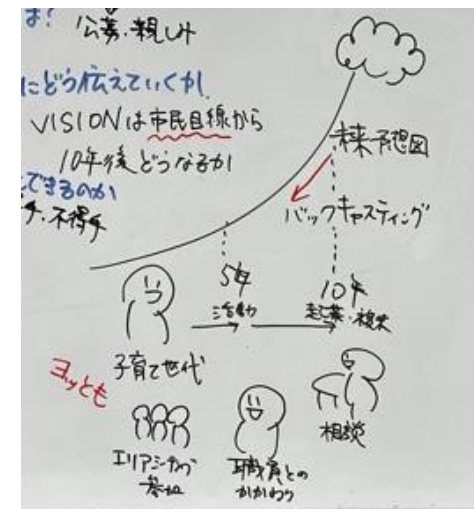 は? 公募・親しみ
にどう伝えていくか
VISIONは市民目線から
10年後どうなるか
できるのか
手・不得手
未来予想図
バックキャスティング
5年
活動
10年
起業・複業
子育て世代
ヨッとも
エリアミーティング
参加
職員との
かかわり
相談